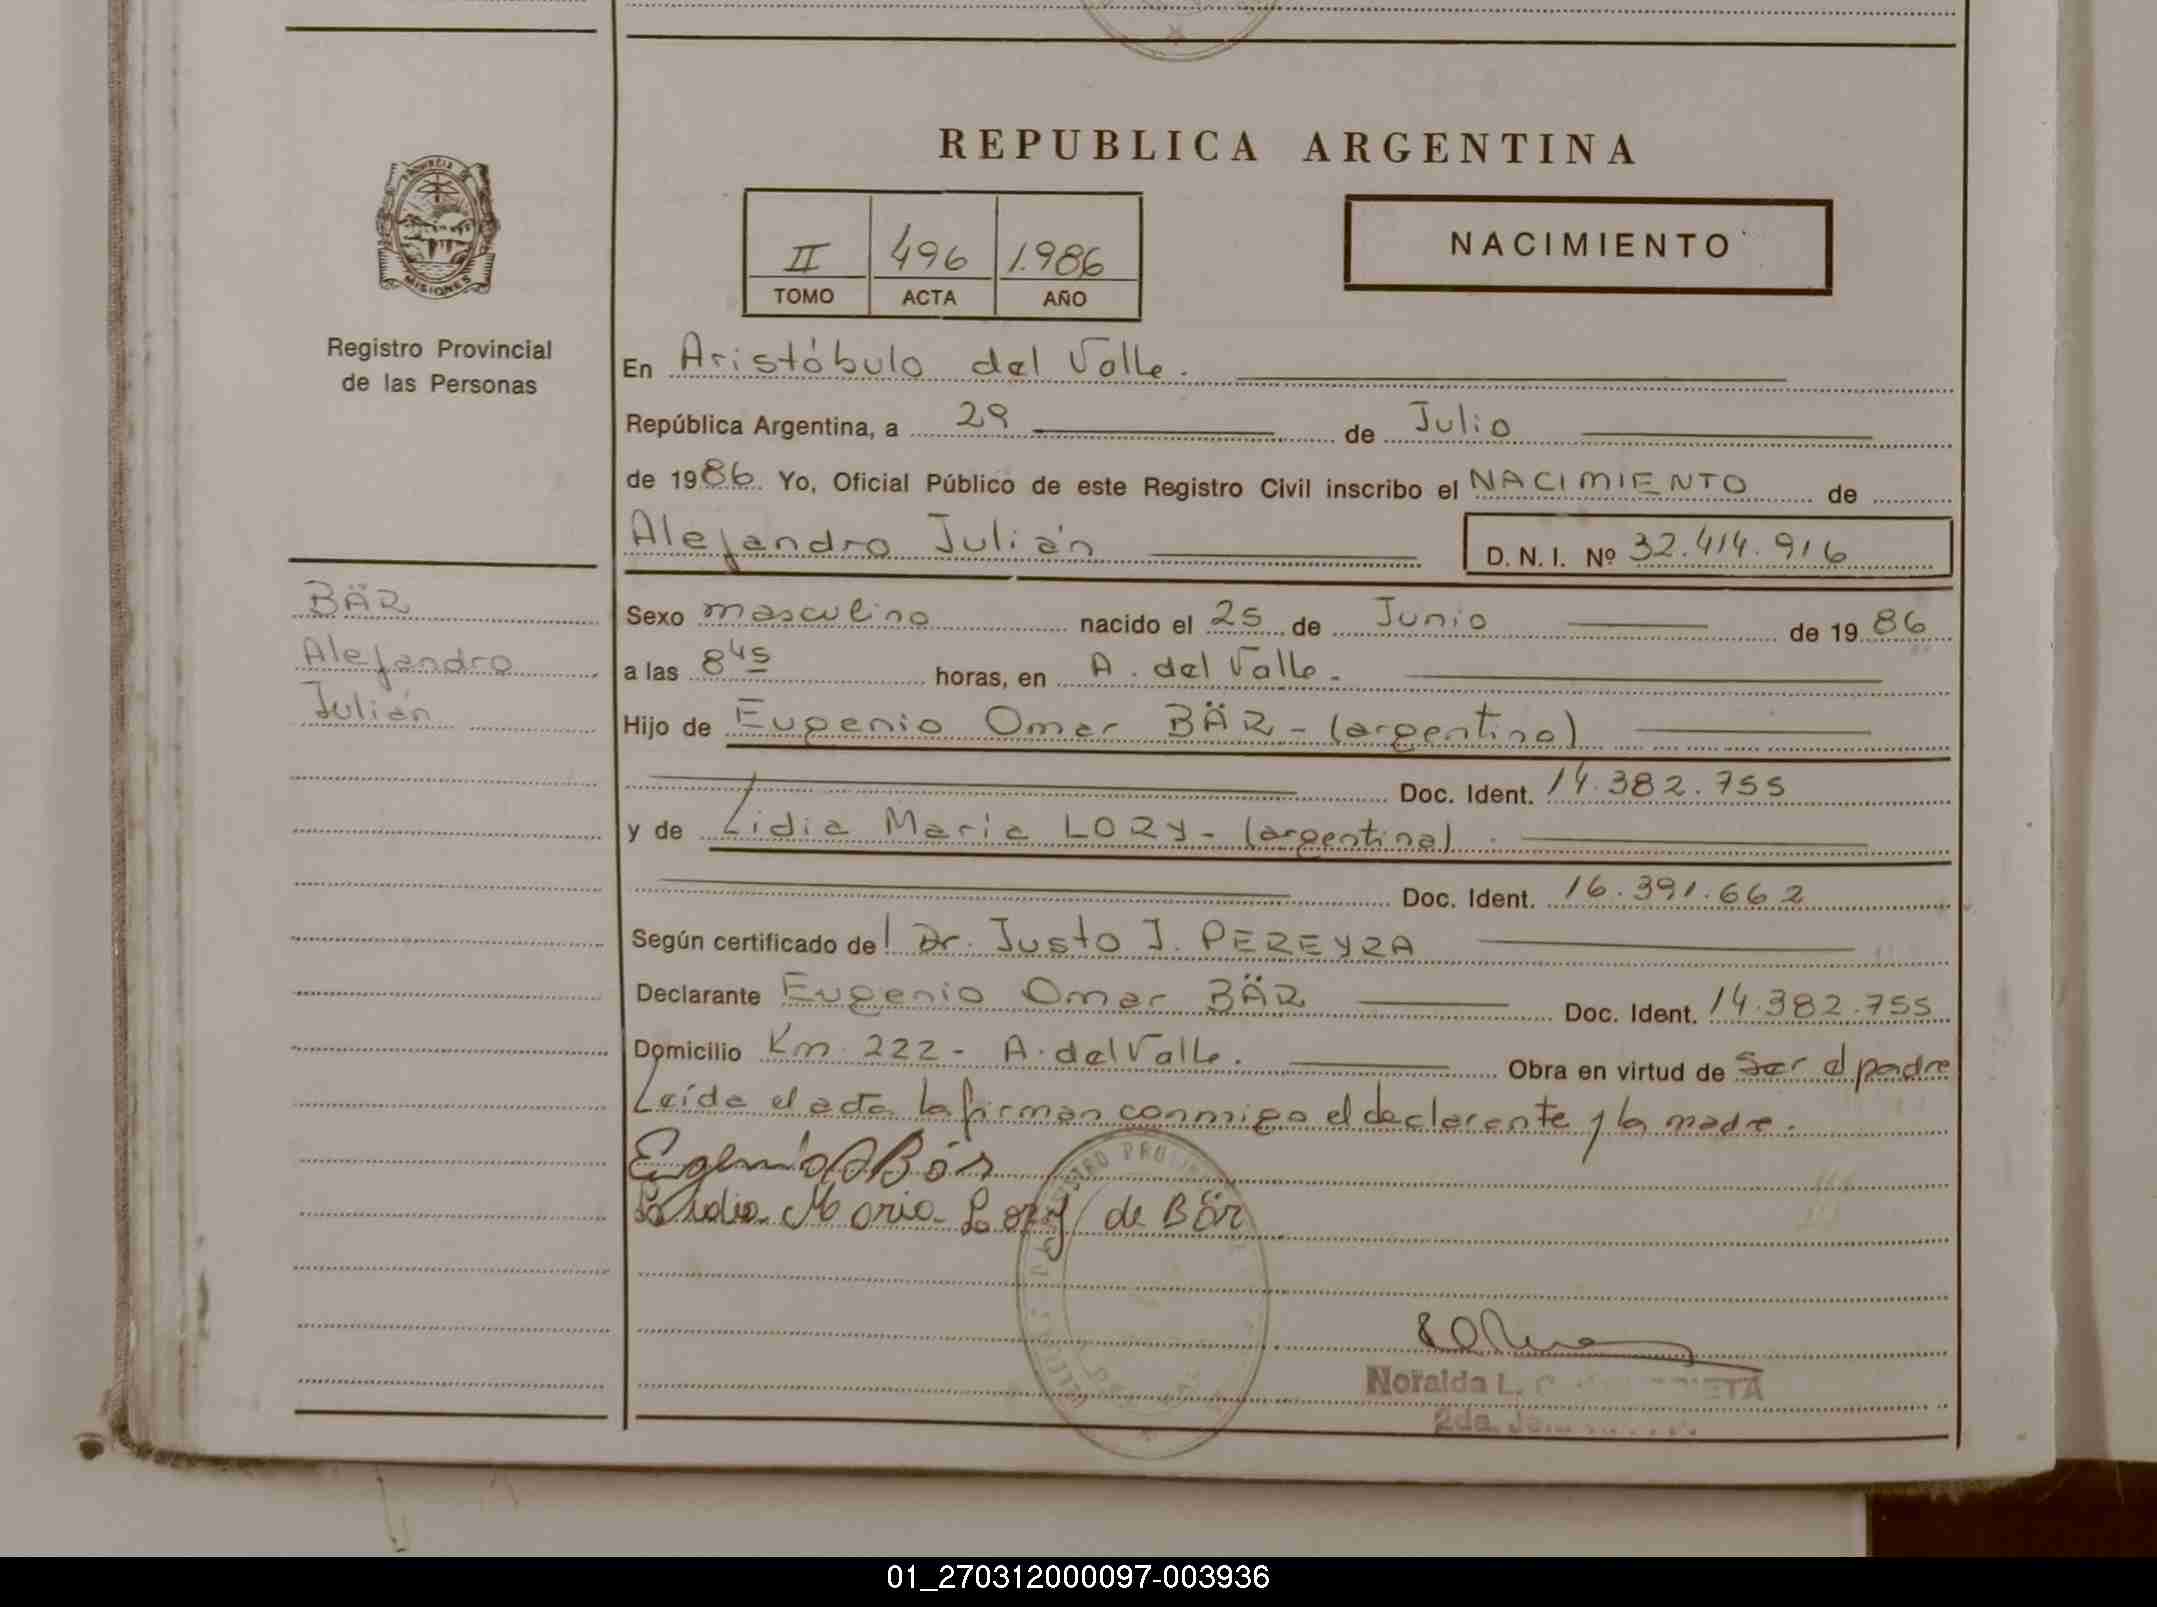 REPUBLICA ARGENTINA
PROVINCIA DE
MISIONES
Registro Provincial
de las Personas
II 496 1.986
TOMO ACTA AÑO
NACIMIENTO
En Aristóbulo del Valle.
República Argentina, a 29 de Julio
de 1986. Yo, Oficial Público de este Registro Civil inscribo el NACIMIENTO de
Alejandro Julián
D. N. I. Nº 32.414.916
BÄR
Alejandro
Julián
Sexo masculino nacido el 25 de Junio de 1986
a las 8 45 horas, en A. del Valle.
Hijo de Eugenio Omar BÄR - (argentino)
Doc. Ident. 14.382.755
y de Lidia María LORY - (argentina)
Doc. Ident. 16.391.662
Según certificado del Dr. Justo J. PEREYRA
Declarante Eugenio Omar BÄR Doc. Ident. 14.382.755
Domicilio Km 222 - A. del Valle. Obra en virtud de ser el padre
Leída el acta la firman conmigo el declarante y la madre.
Eugenio O Bär
Lidia Maria Lory de Bär
REGISTRO PROVINCIAL
Noralda L.
2da.
01_270312000097-003936